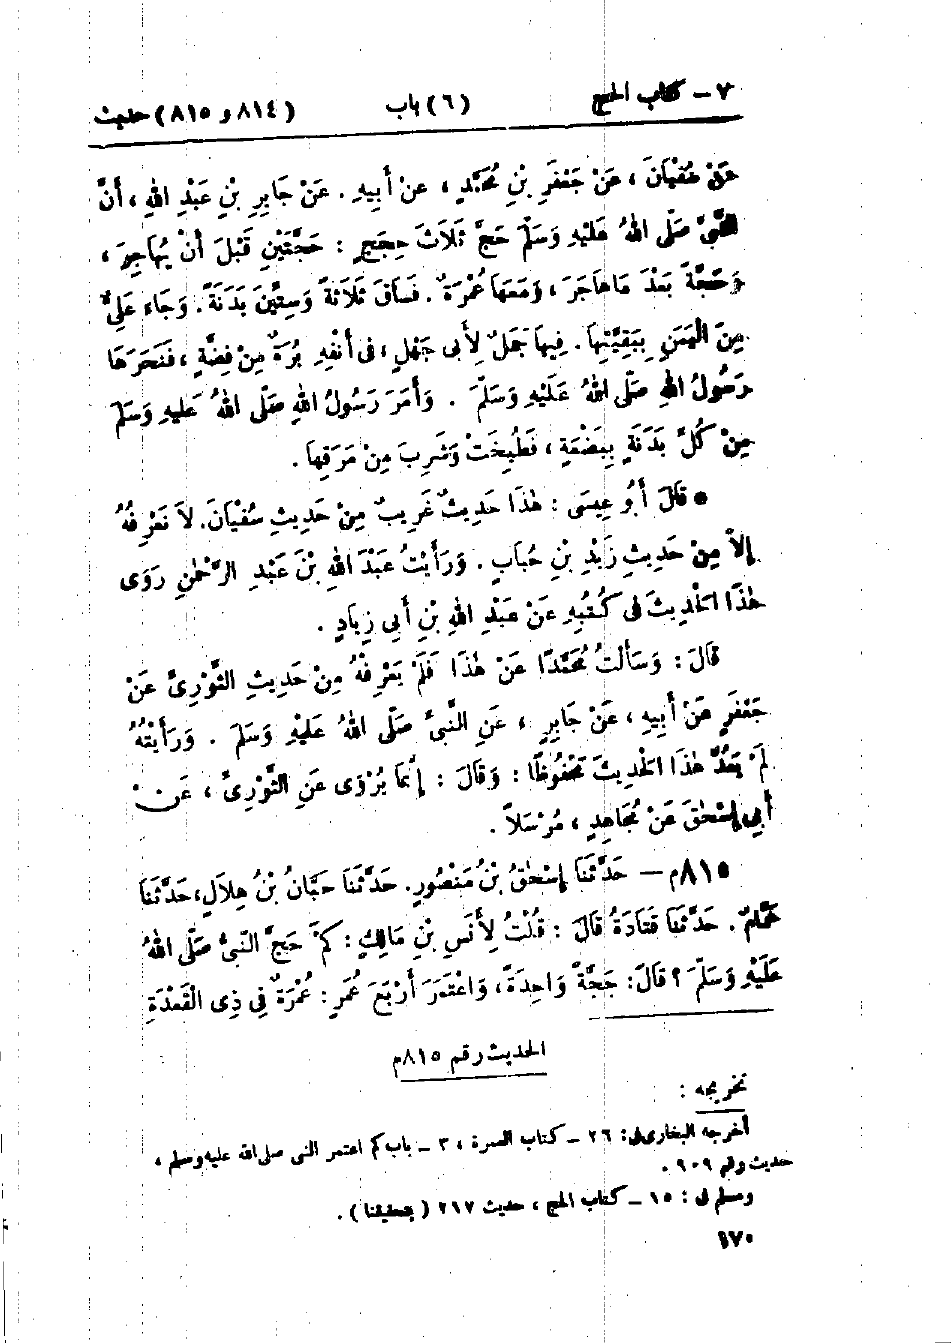 ٧ — كتاب الحج (٦) باب (٨١٤ و ٨١٥) حديث
عَنْ سُفْيَانَ ، عَنْ جَعْفَرِ بْنِ مُحَمَّدٍ ، عَنْ أَبِيهِ . عَنْ جَابِرِ بْنِ عَبْدِ اللهِ ، أَنَّ
النَّبِيَّ صَلَّى اللهُ عَلَيْهِ وَسَلَّمَ حَجَّ ثَلَاثَ حِجَجٍ : حَجَّتَيْنِ قَبْلَ أَنْ يُهَاجِرَ ،
وَحَجَّةً بَعْدَ مَا هَاجَرَ ، وَمَعَهَا عُمْرَةٌ . فَسَاقَ ثَلَاثَةً وَسِتِّينَ بَدَنَةً . وَجَاء عَلِيٌّ
مِنَ الْيَمَنِ بِبَقِيَّتِهَا . فِيهَا جَمَلٌ لِأَبِى جَهْلٍ ، فِى أَنْفِهِ بُرَةٌ مِنْ فِضَّةٍ ، فَنَحَرَهَا
رَسُولُ اللهِ صَلَّى اللهُ عَلَيْهِ وَسَلَّمَ . وَأَمَرَ رَسُولُ اللهِ صَلَّى اللهُ عَلَيهِ وَسَلَّمَ
مِنْ كُلِّ بَدَنَةٍ بِبَضْعَةٍ ، فَطُبِخَتْ وَشَرِبَ مِنْ مَرَقِهَا .
● قَالَ أَبُو عِيسَى : هٰذَا حَدِيثٌ غَرِيبٌ مِنْ حَدِيثِ سُفْيَانَ . لاَ نَعْرِفُهُ
إِلاَّ مِنْ حَدِيثِ زَيْدِ بْنِ حُبَابٍ . وَرَأَيْتُ عَبْدَ اللهِ بْنَ عَبْدِ الرَّحْمٰنِ رَوَى
هٰذَا الْحَدِيثَ فِى كُتُبِهِ عَنْ عَبْدِ اللهِ بْنِ أَبِى زِيَادٍ .
قَالَ : وَسَأَلْتُ مُحَمَّدًا عَنْ هٰذَا فَلَمْ يَعْرِفْهُ مِنْ حَدِيثِ الثَّوْرِىِّ عَنْ
جَعْفَرٍ عَنْ أَبِيهِ ، عَنْ جَابِرٍ ، عَنِ النَّبِىِّ صَلَّى اللهُ عَلَيْهِ وَسَلَّمَ . وَرَأَيْتُهُ
لَمْ يَعُدَّ هٰذَا الْحَدِيثَ مَحْفُوظًا : وَقَالَ : إِنَّمَا يُرْوَى عَنِ الثَّوْرِىِّ ، عَنْ
أَبِى إِسْحٰقَ عَنْ مُجَاهِدٍ ، مُرْسَلاً .
٨١٥م — حَدَّثَنَا إِسْحٰقُ بْنُ مَنْصُورٍ . حَدَّثَنَا حَبَّانُ بْنُ هِلَالٍ ، حَدَّثَنَا
هَمَّامٌ . حَدَّثَنَا قَتَادَةُ قَالَ : قُلْتُ لِأَنَسِ بْنِ مَالِكٍ : كَمْ حَجَّ النَّبِىُّ صَلَّى اللهُ
عَلَيْهِ وَسَلَّمَ ؟ قَالَ : حَجَّةً وَاحِدَةً ، وَاعْتَمَرَ أَرْبَعَ عُمَرٍ : عُمْرَةٌ فِى ذِى الْقَعْدَةِ
الحديث رقم ٨١٥م
تخريجه :
أخرجه البخارى فى : ٢٦ — كتاب العمرة ، ٣ — باب كم اعتمر النبى صلى الله عليه وسلم ،
حديث رقم ٩٠٩ .
ومسلم فى : ١٥ — كتاب الحج ، حديث ٢١٧ ( بتحقيقنا ) .
١٧٠